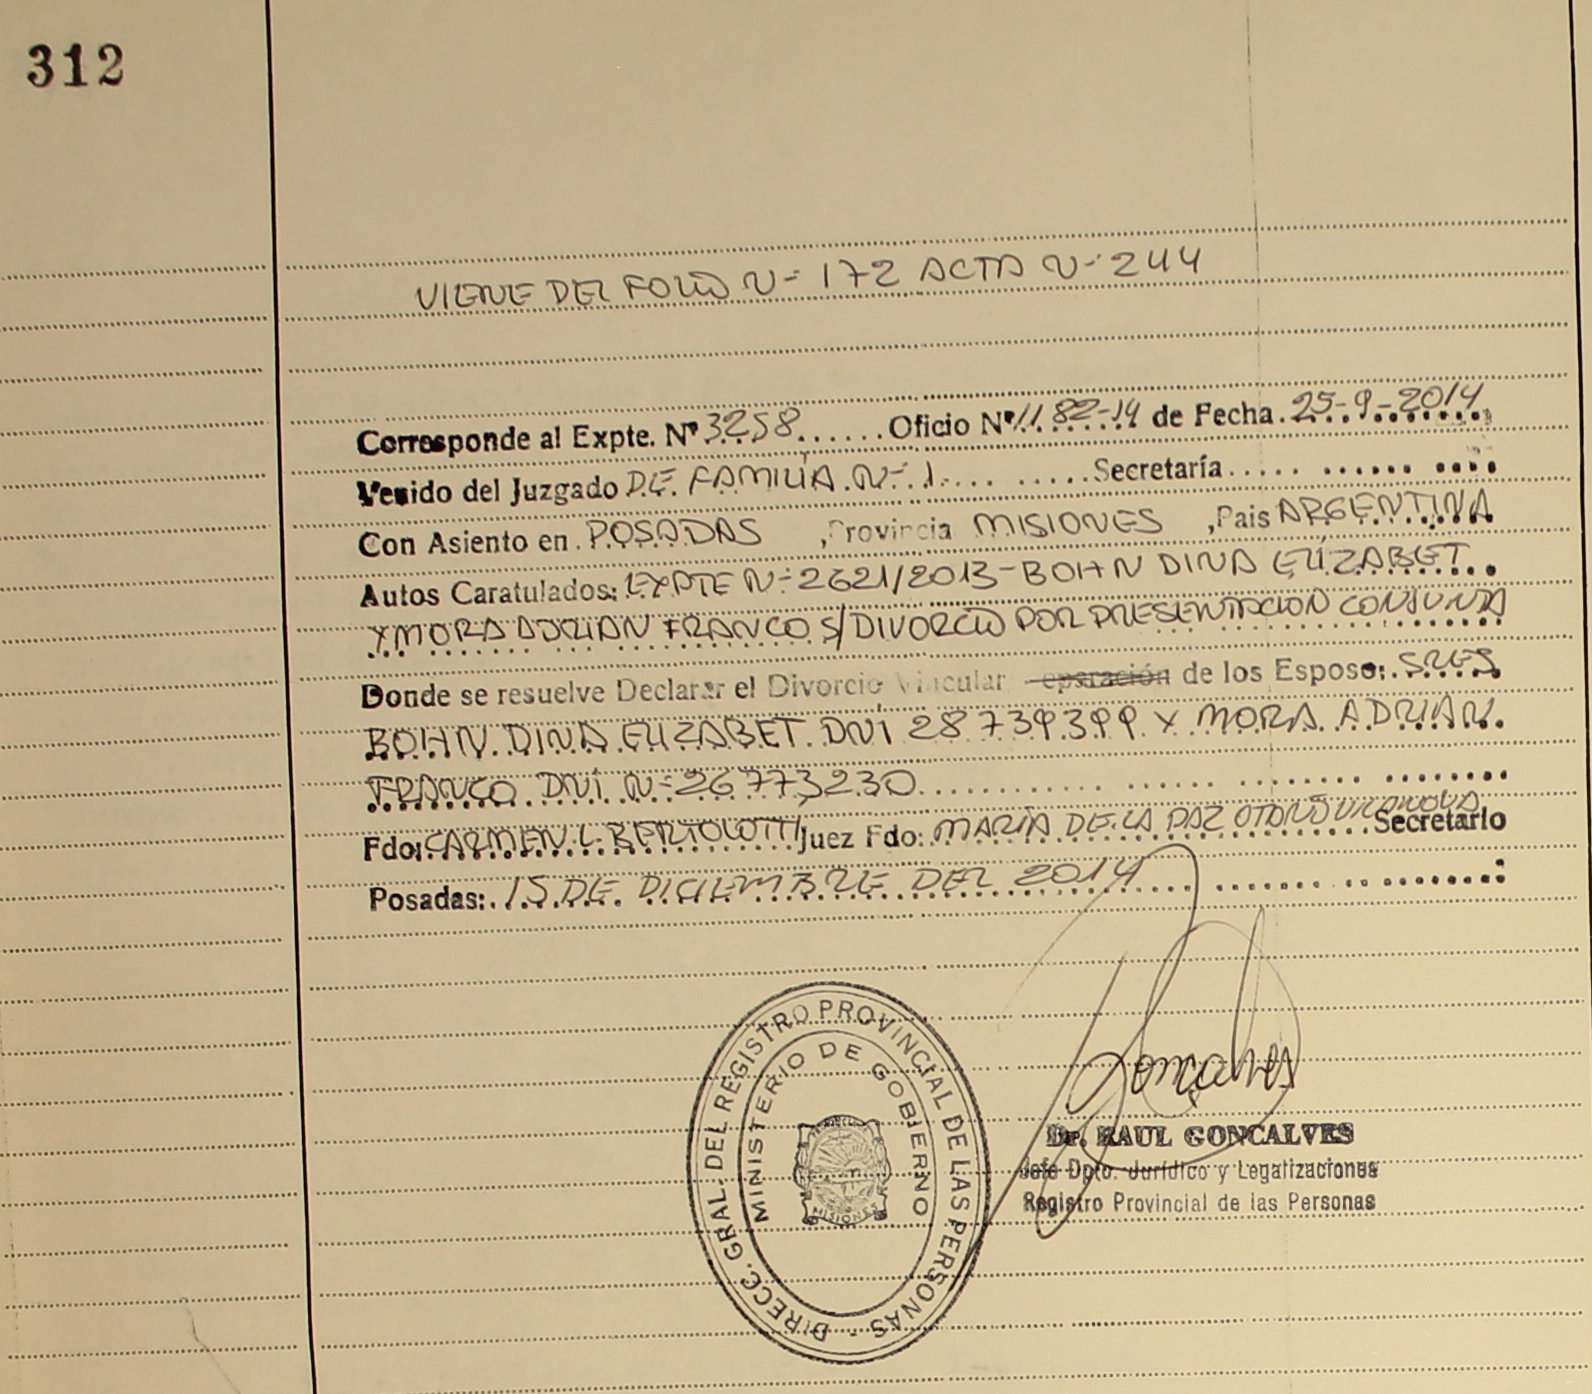 312
VIENE DEL FOLIO N= 172 ACTA N= 244
Corresponde al Expte. Nº 3258...... Oficio Nº 1182-14 de Fecha. 25-9-2014
Venido del Juzgado DE FAMILIA N= 1.... .....Secretaría..... ...... ....
Con Asiento en. POSADAS ,Provincia MISIONES ,Pais ARGENTINA
Autos Caratulados: EXPTE N= 2621/2013 - BOHN DINA ELIZABET
Y MORA ADRIAN FRANCO S/ DIVORCIO POR PRESENTACION CONJUNTA
Donde se resuelve Declarar el Divorcio Vincular eparación de los Esposo: SRES
BOHN DINA ELIZABET DNI 28739399 Y MORA ADRIAN
FRANCO DNI N= 26773230
Fdo: CARMEN L. BERTOLOTTI Juez Fdo: MARIA DE LA PAZ Secretario
Posadas: 15 DE DICIEMBRE DEL 2014
DIRECC. GRAL. DEL REGISTRO PROVINCIAL DE LAS PERSONAS -
MINISTERIO DE GOBIERNO
MISIONES
Goncalves
Dr. RAUL GONCALVES
Jefe Dpto. Jurídico y Legalizaciones
Registro Provincial de las Personas